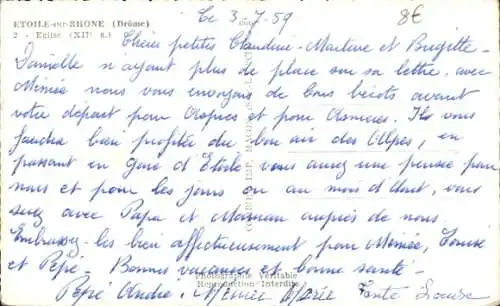 ETOILE-sur-RHONE (Drôme)
2 - Eglise (XIIe s.)
Le 3-7-59
8€
Chères petites Claudine - Martine et Brigitte -
Danielle n'ayant plus de place sur sa lettre, avec
Mémée nous vous envoyons de bons bécots avant
votre départ pour Aspres et pour Asnières. Il vous
faudra bien profiter du bon air des Alpes, en
passant en Gare d'Etoile vous aurez une pensée pour
nous et pour les jours ou au mois d'Août, vous
serez avec Papa et Maman auprès de nous.
Embrassez-les bien affectueusement pour Mémée, Louise
et Pépé - Bonnes vacances et bonne santé -
Photographie Véritable
Reproduction Interdite
Pépé André Mémée Marie Tante Louise